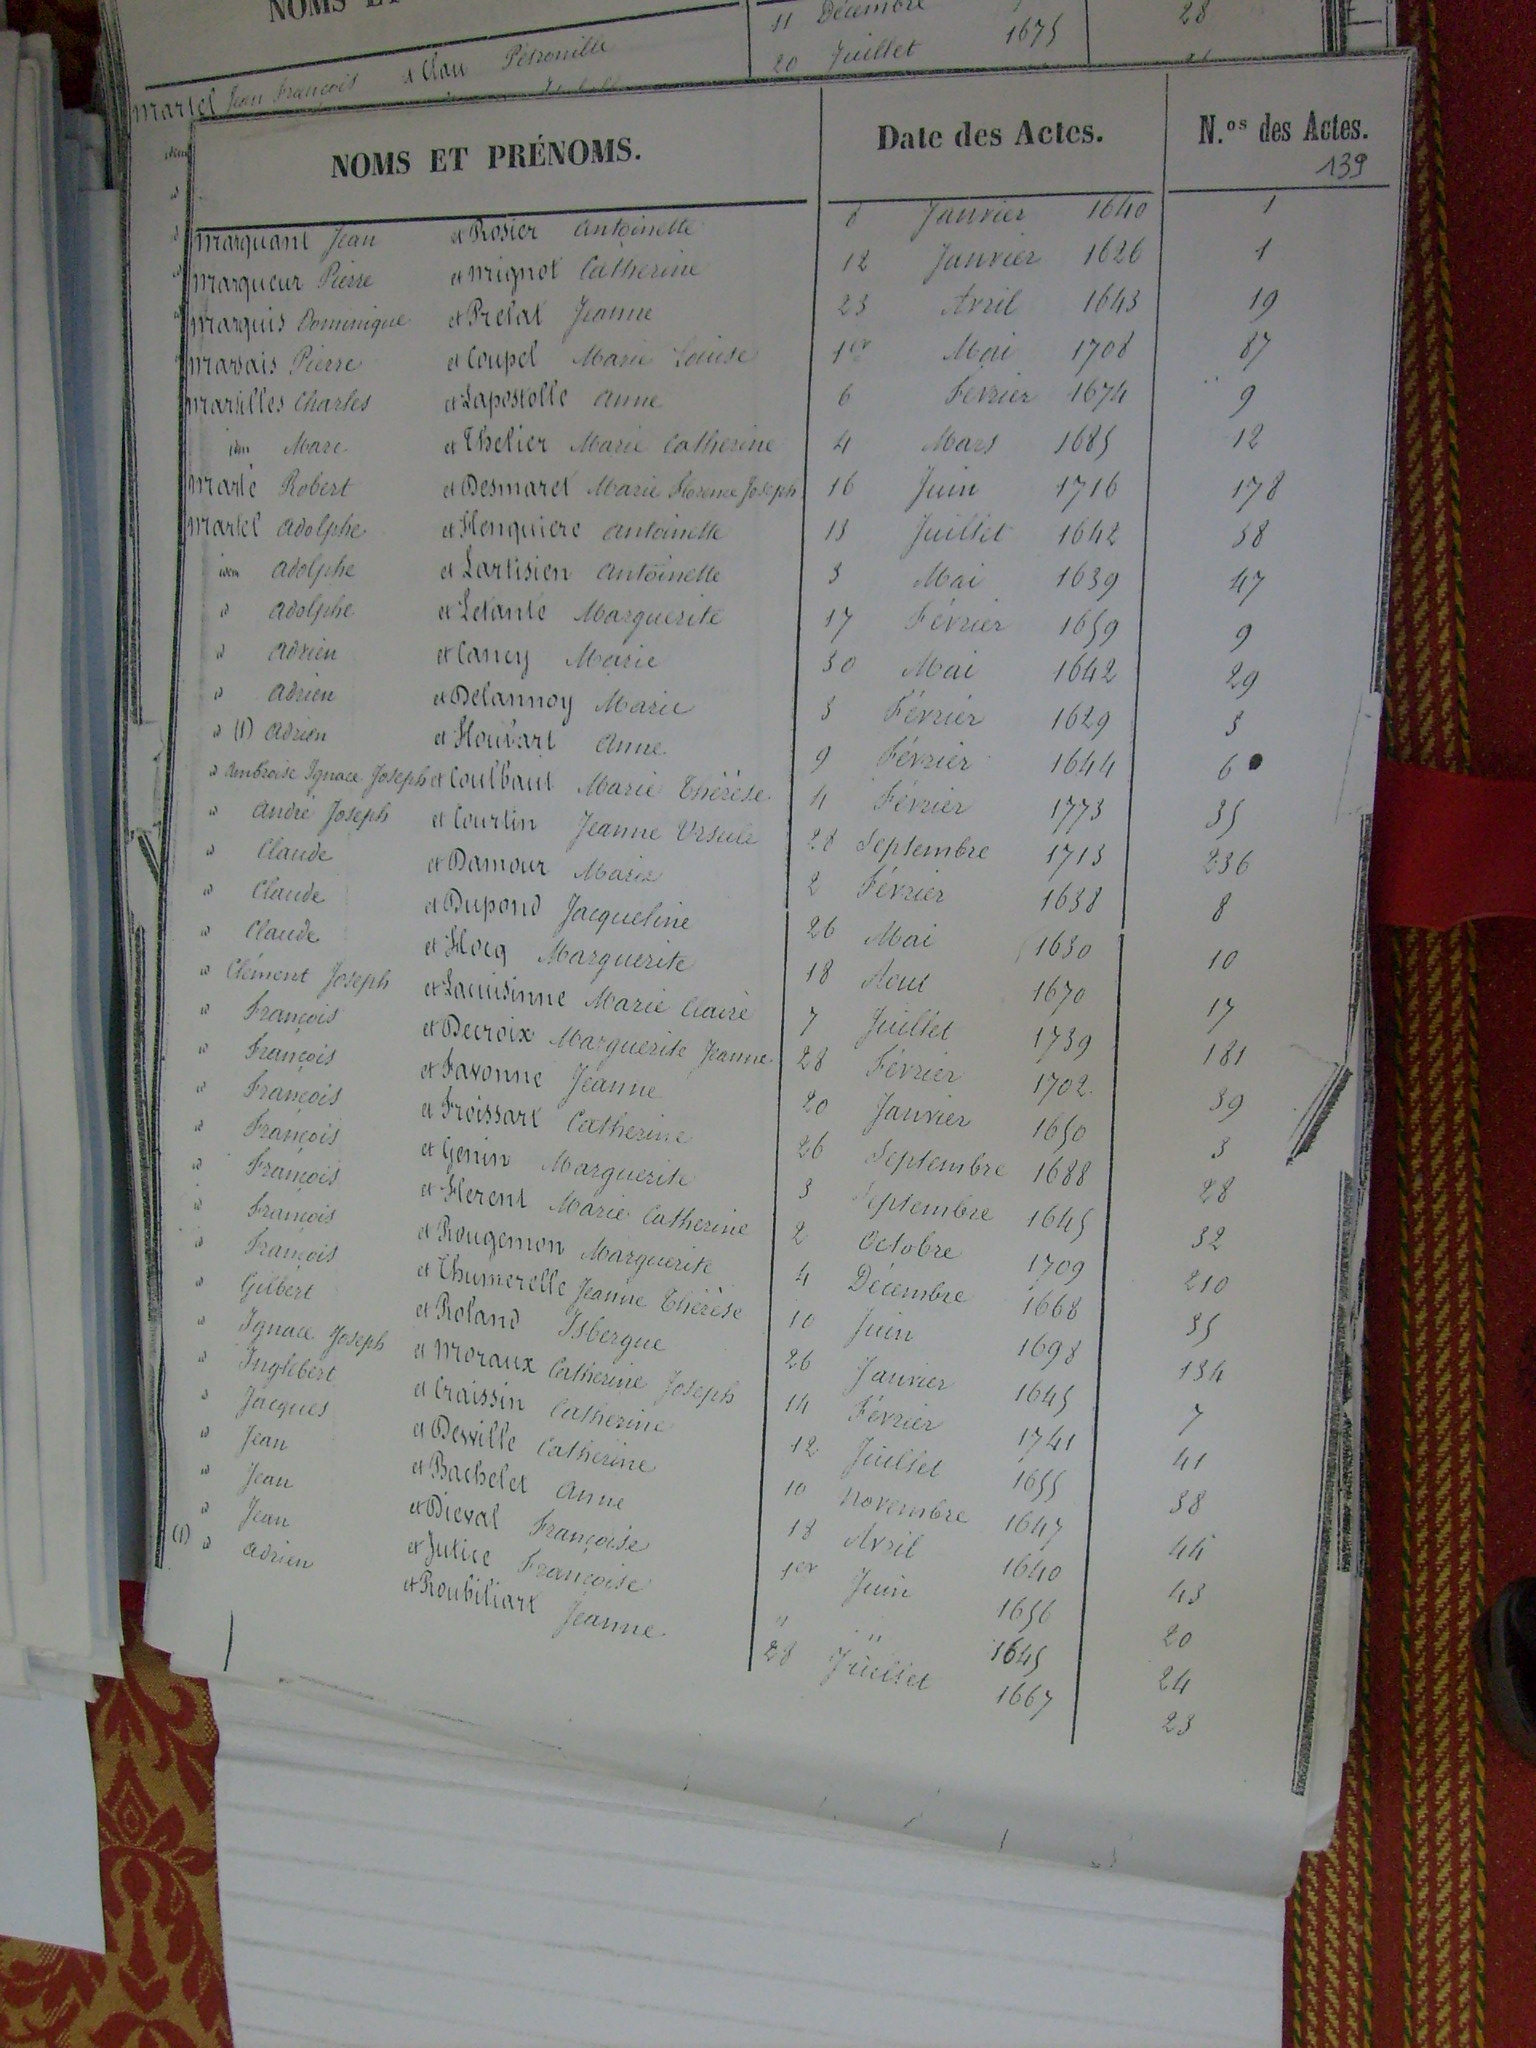 11 Décembre 28
Martel Jean François et Clau Pétronille 20 Juillet 1675
NOMS ET PRÉNOMS. Date des Actes. N.os des Actes.
139
Marquant Jean et Rosier Antoinette 8 Janvier 1640 1
Marqueur Pierre et Mignot Catherine 12 Janvier 1626 1
Marquis Dominique et Prelat Jeanne 23 Avril 1643 19
Marsais Pierre et Coupel Marie Louise 1er Mai 1708 87
Marsilles Charles et Lapostolle Anne 6 Février 1674 9
idem Marc et Thelier Marie Catherine 4 Mars 1685 12
Marté Robert et Desmaret Marie Florence Joseph 16 Juin 1716 178
Martel Adolphe et Henquiere Antoinette 13 Juillet 1642 38
idem Adolphe et Lartisien Antoinette 3 Mai 1639 47
id Adolphe et Letante Marguerite 17 Février 1659 9
id Adrien et Cancy Marie 30 Mai 1642 29
id Adrien et Delannoy Marie 3 Février 1629 3
id (1) Adrien et Houvart Anne 9 Février 1644 6
id Ambroise Ignace Joseph et Coulbaut Marie Thérèse 4 Février 1773 35
id André Joseph et Courtin Jeanne Ursule 28 Septembre 1713 236
id Claude et Damour Marie 2 Février 1638 8
id Claude et Dupond Jacqueline 26 Mai 1630 10
id Claude et Hocq Marguerite 18 Aout 1670 17
id Clément Joseph et Lacuisinne Marie Claire 7 Juillet 1739 181
id François et Decroix Marguerite Jeanne 28 Février 1702 39
id François et Favonne Jeanne 20 Janvier 1650 3
id François et Froissart Catherine 26 Septembre 1688 28
id François et Genin Marguerite 3 Septembre 1645 32
id François et Herent Marie Catherine 2 Octobre 1709 210
id François et Rougemon Marguerite 4 Décembre 1668 35
id François et Thumerelle Jeanne Thérèse 10 Juin 1698 134
id Gilbert et Roland Isbergue 26 Janvier 1645 7
id Ignace Joseph et Moraux Catherine Joseph 14 Février 1741 41
id Inglebert et Craissin Catherine 12 Juillet 1655 38
id Jacques et Desville Catherine 10 Novembre 1647 44
id Jean et Bachelet Anne 18 Avril 1640 43
id Jean et Dieval Françoise 1er Juin 1656 20
id Jean et Jutice Françoise " " 1645 24
(1) id Adrien et Roubiliart Jeanne 28 Juillet 1667 23